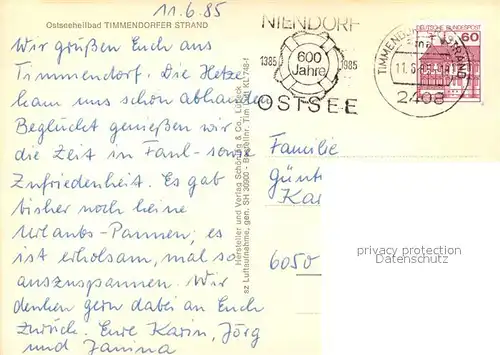 11.6.85
Ostseeheilbad TIMMENDORFER STRAND
Wir grüßen Euch aus
Timmendorf. Die Hetze
kam uns schon abhanden
Beglückt genießen wir
die Zeit in Faul- sowie
Zufriedenheit. Es gab
bisher noch keine
Urlaubs-Pannen; es
ist erholsam, mal so
auszuspannen. Wir
denken gern dabei an Euch
zurück. Eure Karin, Jörg
und Janina
Hersteller und Verlag Schöning & Co., Lübeck
sz Luftaufnahme, gen. SH 30900 - Bestellnr. Tim
NIENDORF
1385 600 1985
Jahre
OSTSEE
TIMMENDORFER STRAND
11.6.85
2408
DEUTSCHE BUNDESPOST
60
Familie
Günt
Kar
6050
privacy protection
Datenschutz